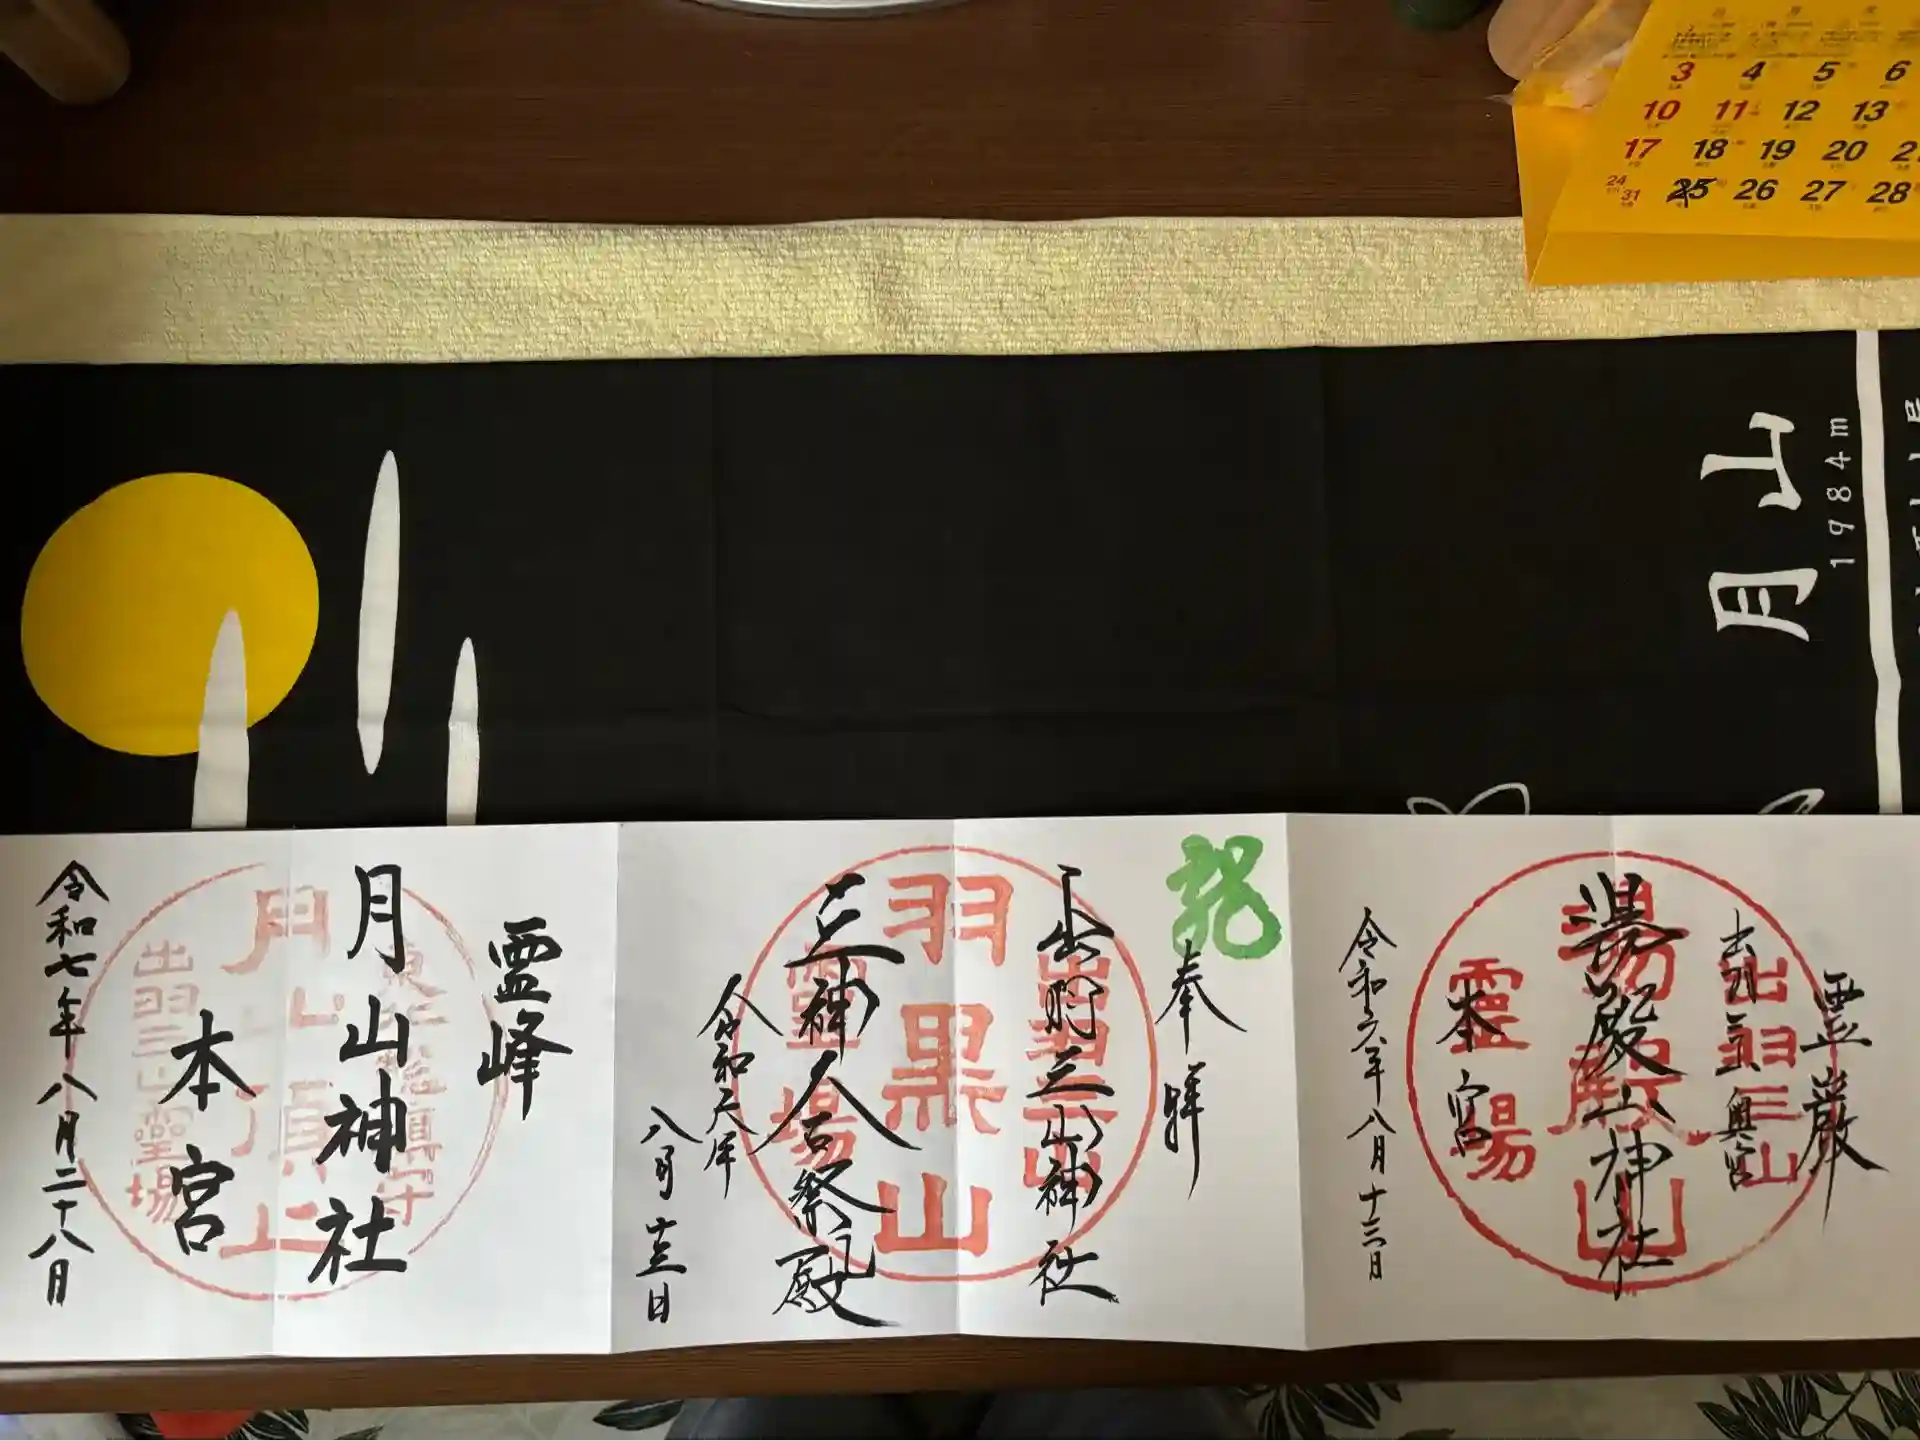 3 4 5 6
10 11 12 13
17 18 19 20
24 31 25 26 27 28
月山
1984m
霊巌
湯殿山神社
本宮
令和六年八月十三日
出羽三山
湯殿山
霊場
龍
奉拝
出羽三山神社
三神合祭殿
令和六年
八月十三日
出羽三山
羽黒山
霊場
霊峰
月山神社
本宮
令和七年八月二十八日
月山頂上
出羽三山霊場